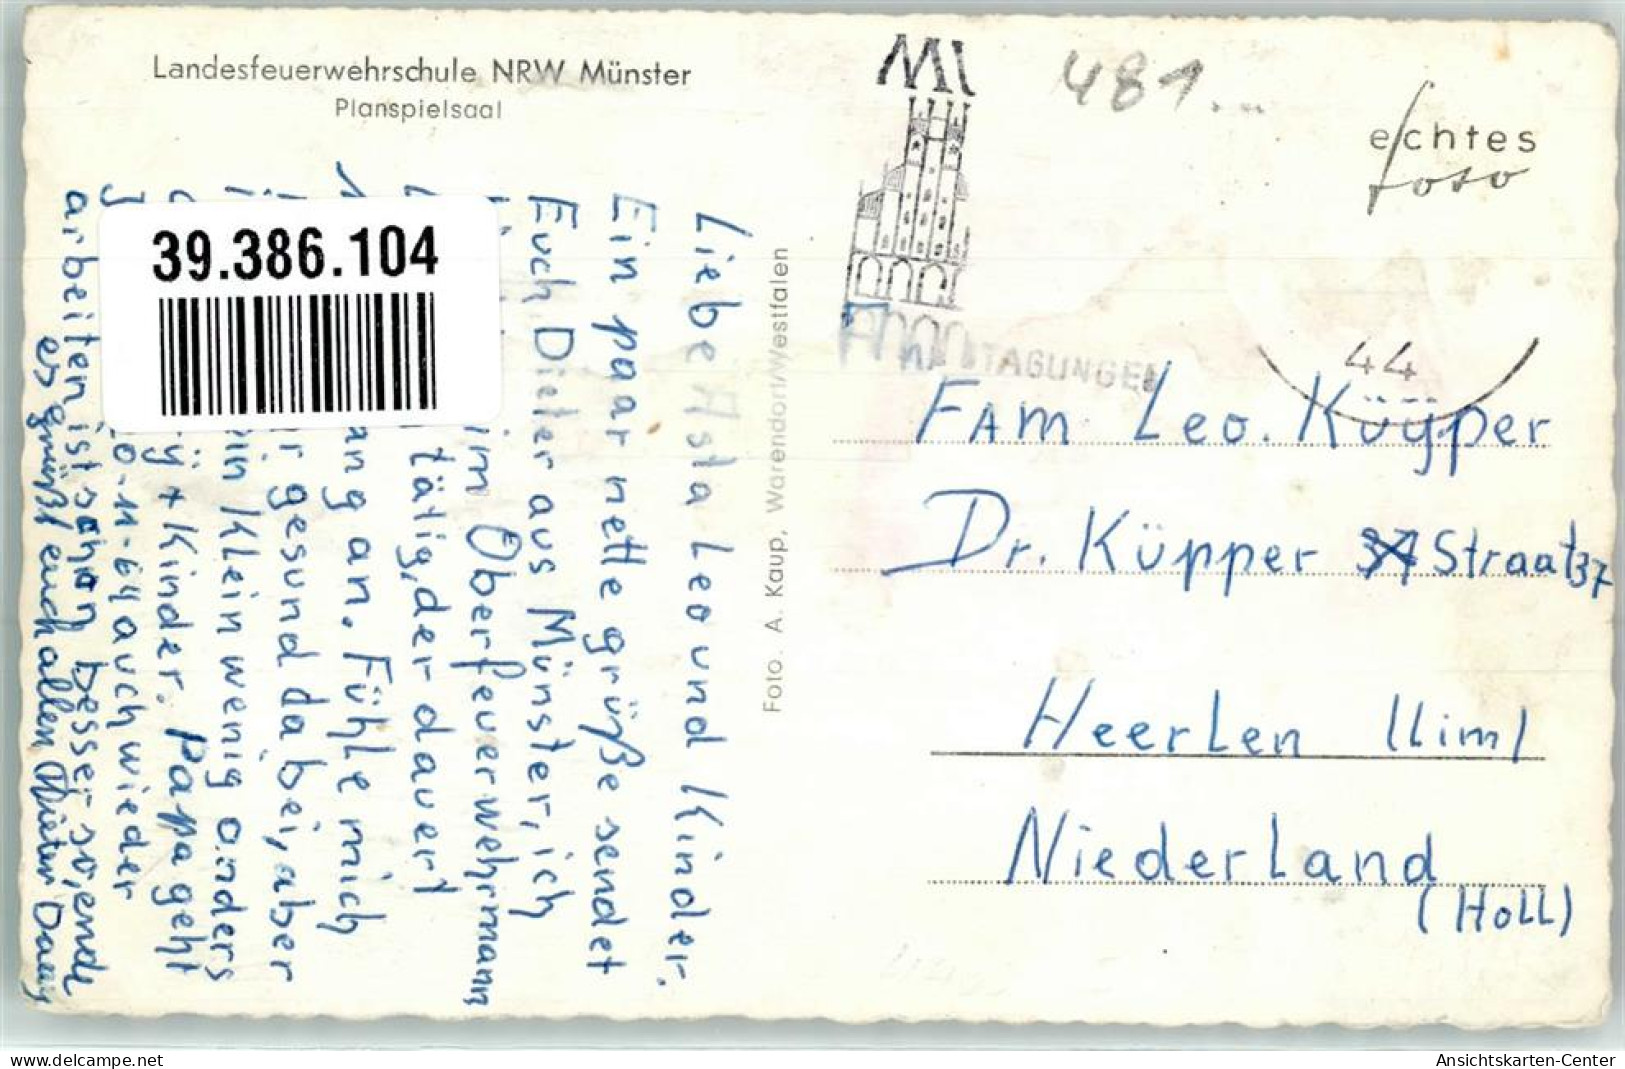 Landesfeuerwehrschule NRW Münster
Planspielsaal
39.386.104
Liebe Asta Leo und Kinder.
Ein paar nette grüße sendet
Euch Dieter aus Münster, ich
im Oberfeuerwehrmann
tätig, der dauert
ang an. Fühle mich
gesund dabei, aber
ein klein wenig anders
+ Kinder. Papa geht
20-11-64 auch wieder
arbeiten ist schon besser so, ende
es grüßt euch allen Dieter
Foto. A. Kaup, Warendorf/Westfalen
481
echtes
foto
TAGUNGEN
44
FAM Leo. Küyper
Dr. Küpper Straat 37
Heerlen (lim)
Niederland
(Holl)
www.oldthing.de
Ansichtskarten-Center